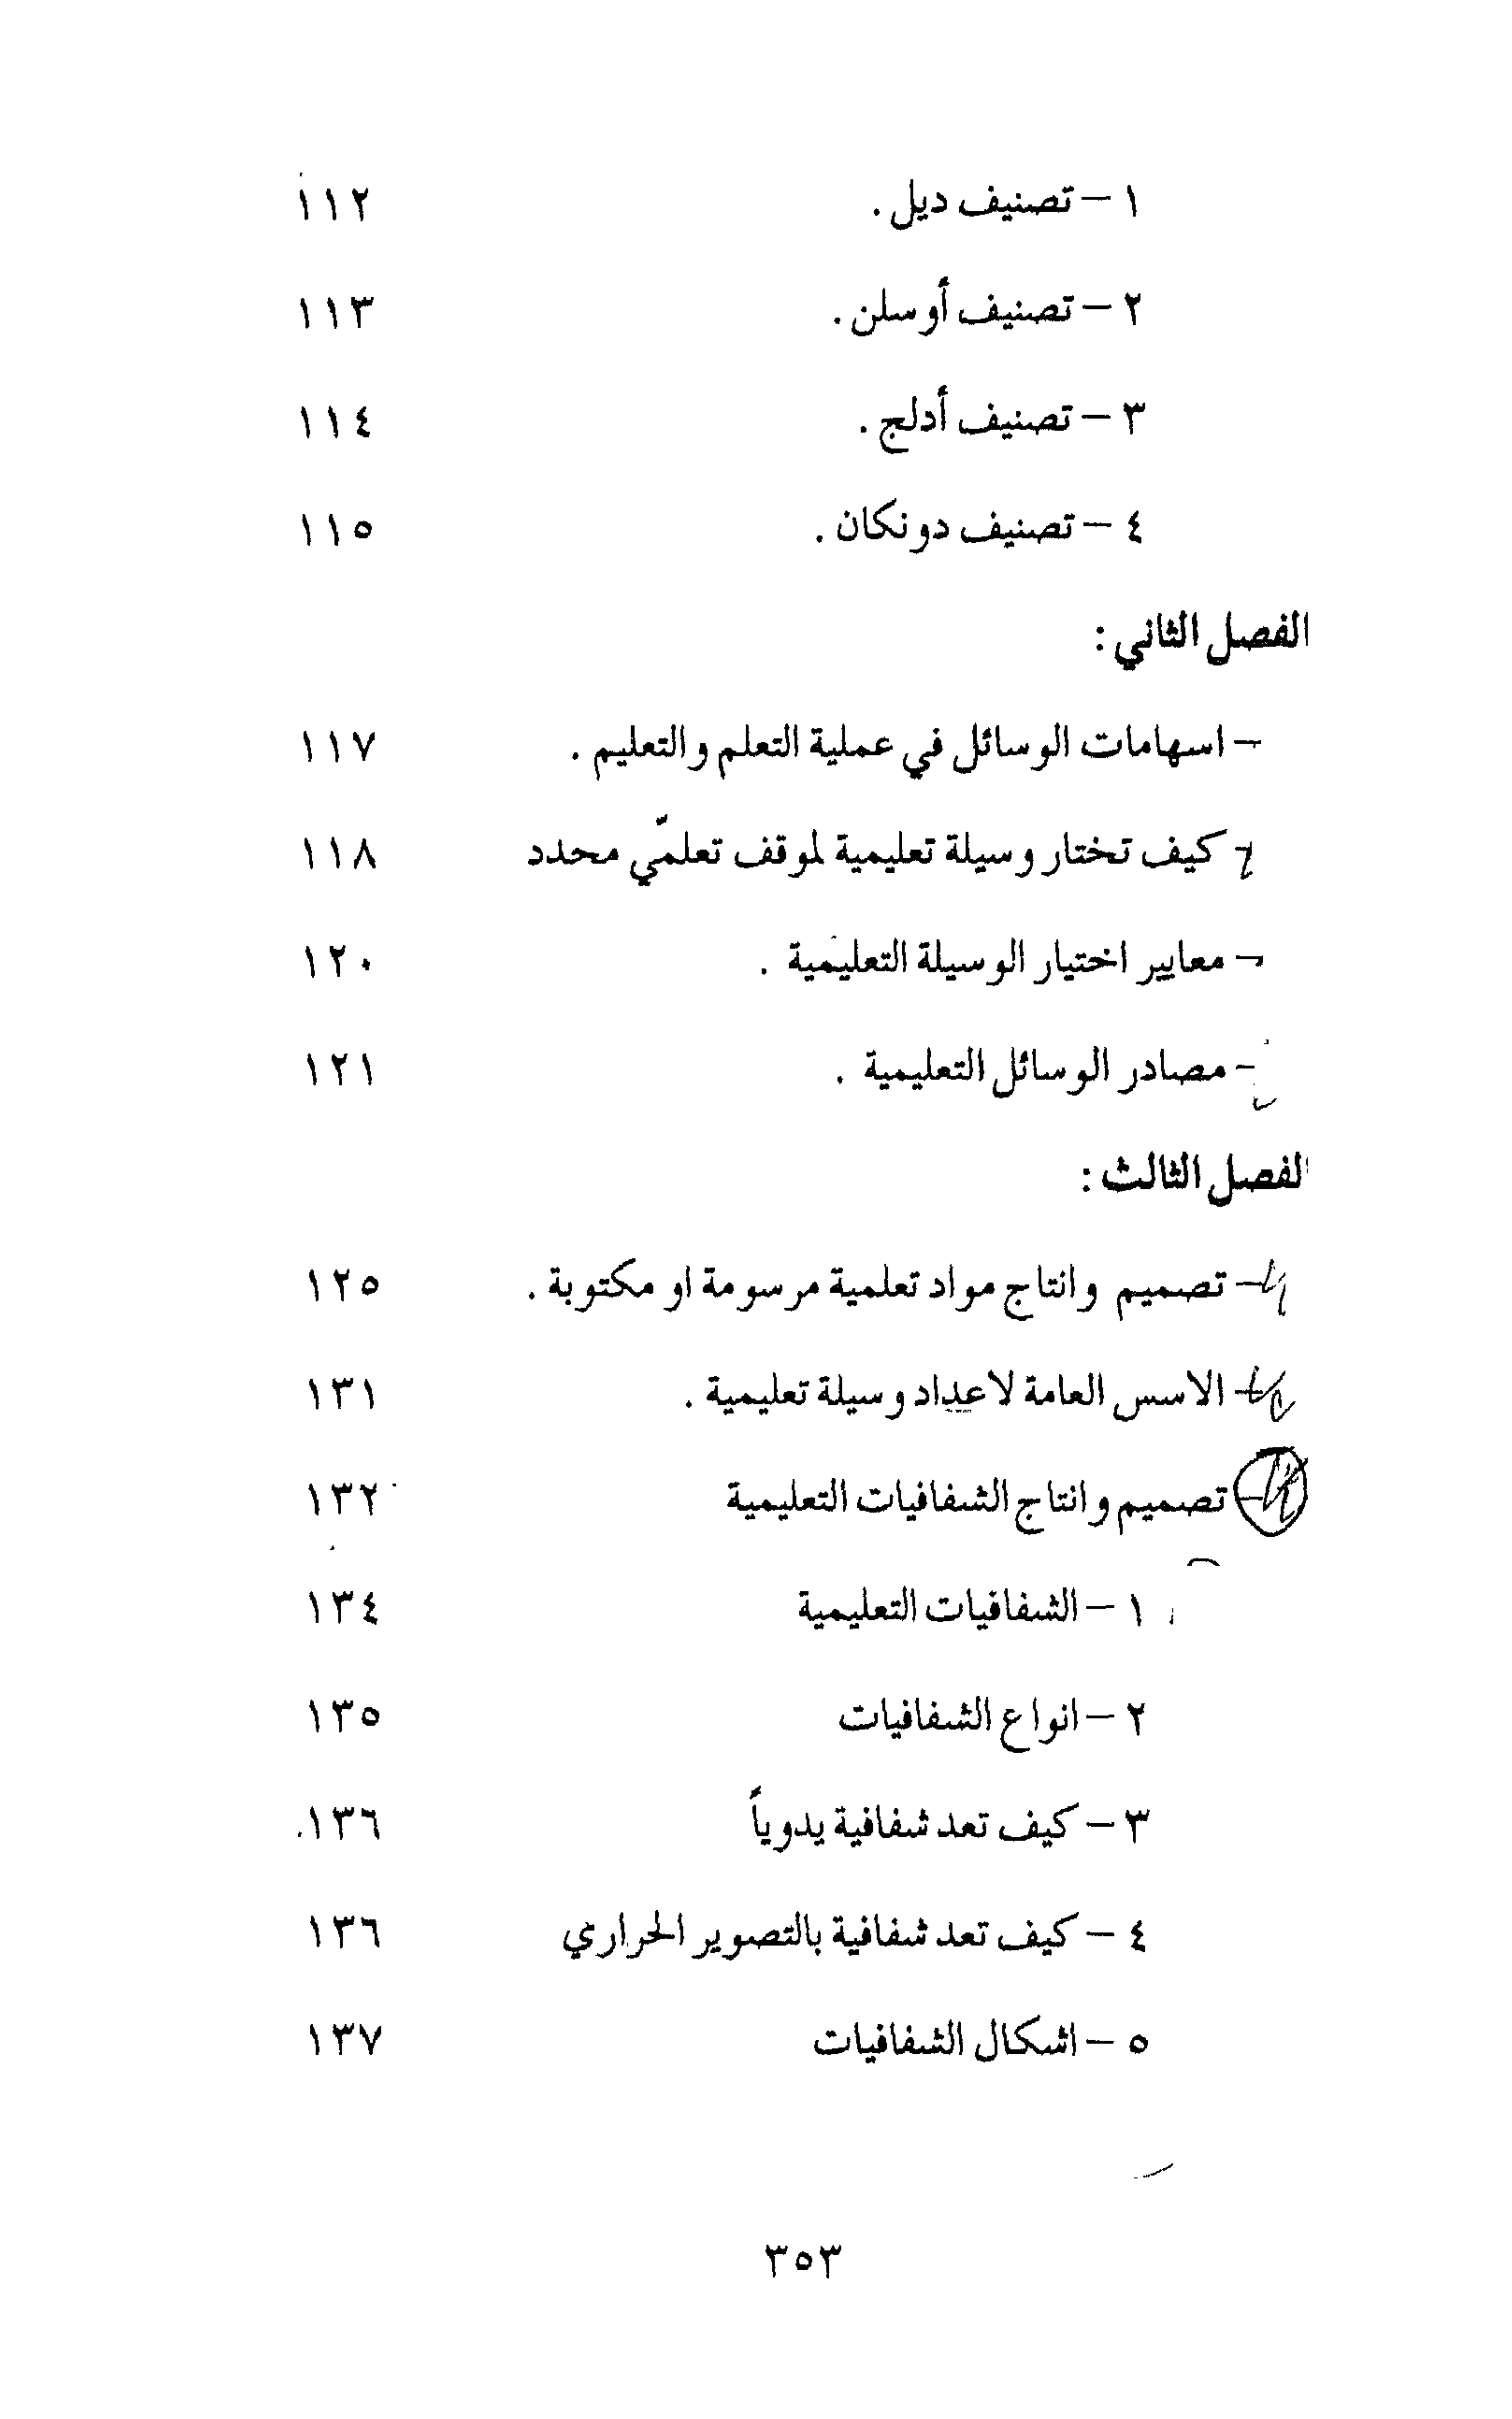 ١ – تصنيف ديل . ١١٢
٢ – تصنيف أوسلن . ١١٣
٣ – تصنيف أدلج . ١١٤
٤ – تصنيف دونكان . ١١٥
الفصل الثاني :
– اسهامات الوسائل في عملية التعلم والتعليم . ١١٧
– كيف تختار وسيلة تعليمية لموقف تعلمّي محدد ١١٨
– معايير اختيار الوسيلة التعليمية . ١٢٠
– مصادر الوسائل التعليمية . ١٢١
الفصل الثالث :
– تصميم وانتاج مواد تعلمية مرسومة او مكتوبة . ١٢٥
– الاسس العامة لاعداد وسيلة تعليمية . ١٣١
– تصميم وانتاج الشفافيات التعليمية ١٣٢
١ – الشفافيات التعليمية ١٣٤
٢ – انواع الشفافيات ١٣٥
٣ – كيف تعد شفافية يدوياً ١٣٦
٤ – كيف تعد شفافية بالتصوير الحراري ١٣٦
٥ – اشكال الشفافيات ١٣٧
٣٥٣